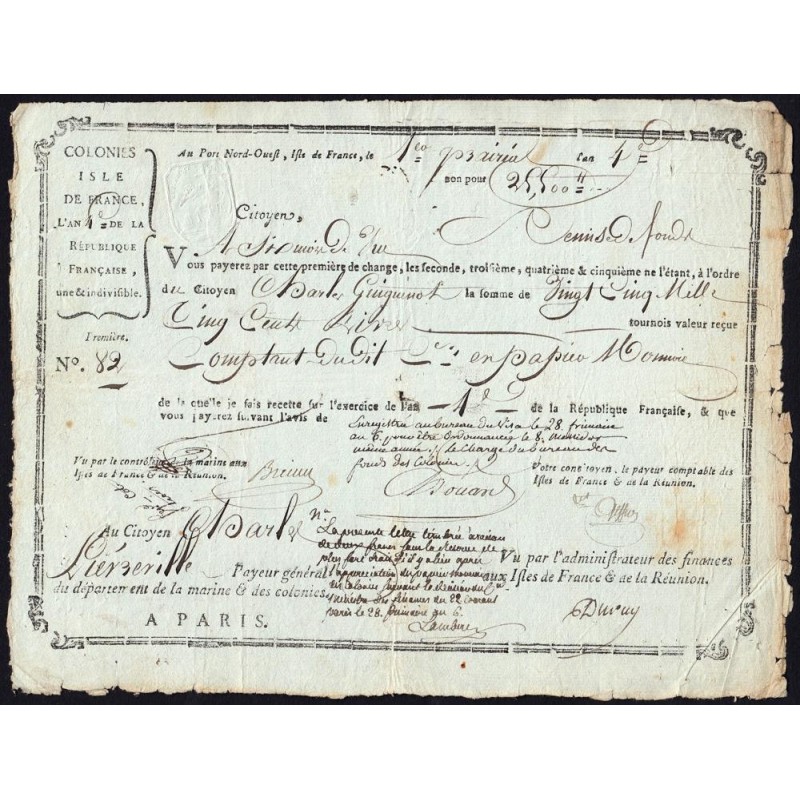 COLONIES
ISLE
DE FRANCE,
L'AN 4e DE LA
RÉPUBLIQUE
FRANÇAISE,
une & indivisible.
Première.
No. 82
Au Port Nord-Ouest, Isle de France, le 1er prairial l'an 4e
bon pour 25,500 ₶
Citoyen,
A Six mois de Vue Remise de fonds
Vous payerez par cette première de change, les seconde, troisième, quatrième & cinquième ne l'étant, à l'ordre
du Citoyen Charles Guiguinot la somme de Vingt Cinq Mille
Cinq Cents Livres tournois valeur reçue
Comptant dudit en papier Monnoie
de la quelle je fais recette sur l'exercice de l'an 4e de la République Française, & que
vous payerez suivant l'avis de
Enregistré au bureau du Visa le 28. frimaire
an 6. pour être ordonnancé le 8. messidor
même année. le Chargé du bureau des
fonds des Colonies.
Drouard
Vu par le contrôleur de la marine aux
Isles de France & de la Réunion.
Votre concitoyen, le payeur comptable des
Isles de France & de la Réunion.
Au Citoyen Charles
Payeur général
du département de la marine & des colonies.
A PARIS.
La présente lettre
de deux
plus fort droit s'il y a lieu après
l'appréciation du papier monnoie
des Colonies suivant la décision du
ministre des finances du 22
Paris le 28. frimaire an 6.
Vu par l'administrateur des finances
aux Isles de France & de la Réunion.